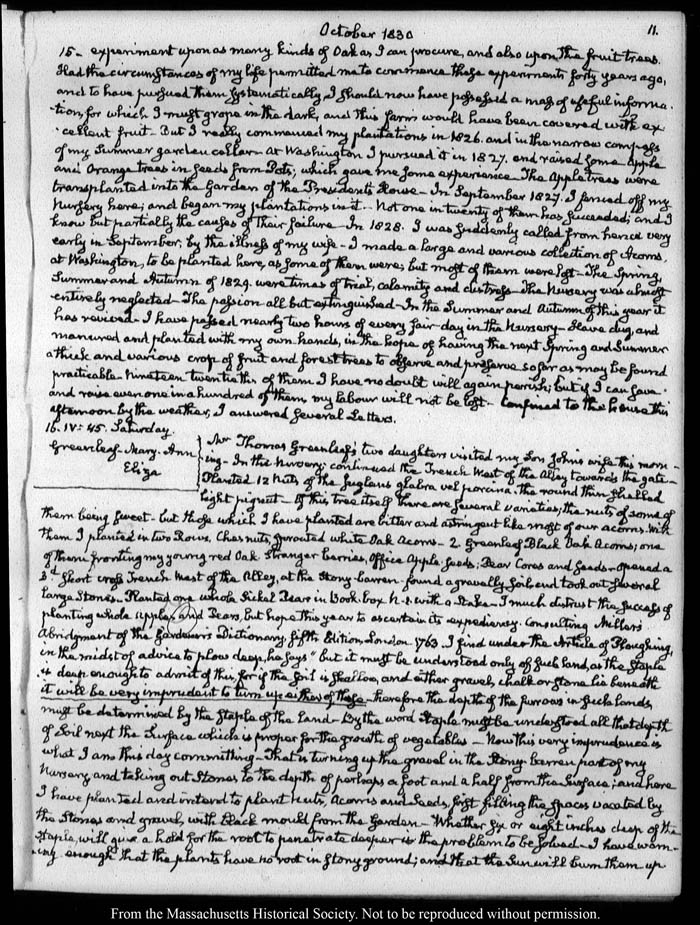 October 1830
11.
15- experiment upon as many kinds of Oak as I can procure, and also upon the fruit trees.
Had the circumstances of my life permitted me to commence these experiments forty years ago,
and to have pursued them systematically, I should now have possessed a mass of useful informa-
tion, for which I must grope in the dark, and this farm would have been covered with ex-
cellent fruit. But I really commenced my plantations in 1826. and in the narrow compass
of my Summer garden cellar- At Washington I pursued it in 1827. and raised some Apple
and Orange trees in seeds from Pots; which gave me some experience. The Apple trees were
transplanted into the Garden of the President's House- In September 1827. I fenced off my
Nursery here; and began my plantations in it. Not one in twenty of them has succeeded; and I
know but partially the causes of their failure- In 1828. I was suddenly called from hence very
early in September, by the illness of my wife- I made a large and various collection of Acorns.
at Washington, to be planted here, as some of them were; but most of them were lost- The Spring,
Summer and Autumn of 1829. were times of trial, calamity and distress- The Nursery was almost
entirely neglected- The passion all but extinguished- In the Summer and Autumn of this year it
has revived- I have passed nearly two hours of every fair-day in the Nursery- I have dug, and
manured and planted with my own hands, in the hope of having the next Spring and Summer
a thick and various crop of fruit and forest trees to observe and preserve so far as may be found
practicable- Nineteen twentieths of them I have no doubt will again perish; but if I can save.
and raise even one in a hundred of them my labour will not be lost- Confined to the house this
afternoon by the weather, I answered several Letters.
16. IV: 45. Saturday.
Greenleaf- Mary- Ann
Eliza
Mr Thomas Greenleaf's two daughters visited my Son John's wife this morn-
ing- In the Nursery continued the Trench West of the Alley towards the gate-
Planted 12 Nuts of the Juglans glabra vel porcina. the round thin shelled
light pignut- Of this tree itself there are several varieties; the nuts of some of
them being sweet- but those which I have planted are bitter and astringent like most of our acorns. With
them I planted in two Rows, Chesnuts, sprouted white Oak Acorns- 2. Greenleaf Black Oak Acorns; one
of them fronting my young red Oak- Stranger berries, Office Apple-seeds; Pear Cores and Seeds- opened a
3d short cross Trench West of the Alley, at the Stony-barren- found a gravelly soil and took out several
large Stones- Planted one whole Sickel Pear in Book-box N. 2. with a Stake- I much distrust the success of
planting whole apples and Pears, but hope this year to ascertain its expediency. Consulting Miller's
Abridgment of the Gardener's Dictionary, fifth Edition, London 1763. I find under the Article of Ploughing,
in the midst of advice to plow deep, he says "but it must be understood only of such land, as the Staple
is deep enough to admit of this, for if the Soil is shallow, and either gravel, chalk or stone lie beneath
it will be very imprudent to turn up either of these- therefore the depth of the furrows in such lands,
must be determined by the Staple of the Land- By the word Staple must be understood all that depth
of Soil next the Surface which is proper for the growth of vegetables- Now this very imprudence is
what I am this day committing- That is turning up the gravel in the Stony-barren part of my
Nursery, and taking out Stones to the depth of perhaps a foot and a half from the Surface; and here
I have planted and intend to plant Nuts, Acorns and Seeds, first filling the spaces vacated by
the Stones and gravel, with black mould from the Garden- Whether six or eight inches deep of the
Staple, will give a hold for the root to penetrate deeper is the problem to be solved- I have warn-
ing enough that the plants have no root in stony ground; and that the Sun will burn them up
From the Massachusetts Historical Society. Not to be reproduced without permission.